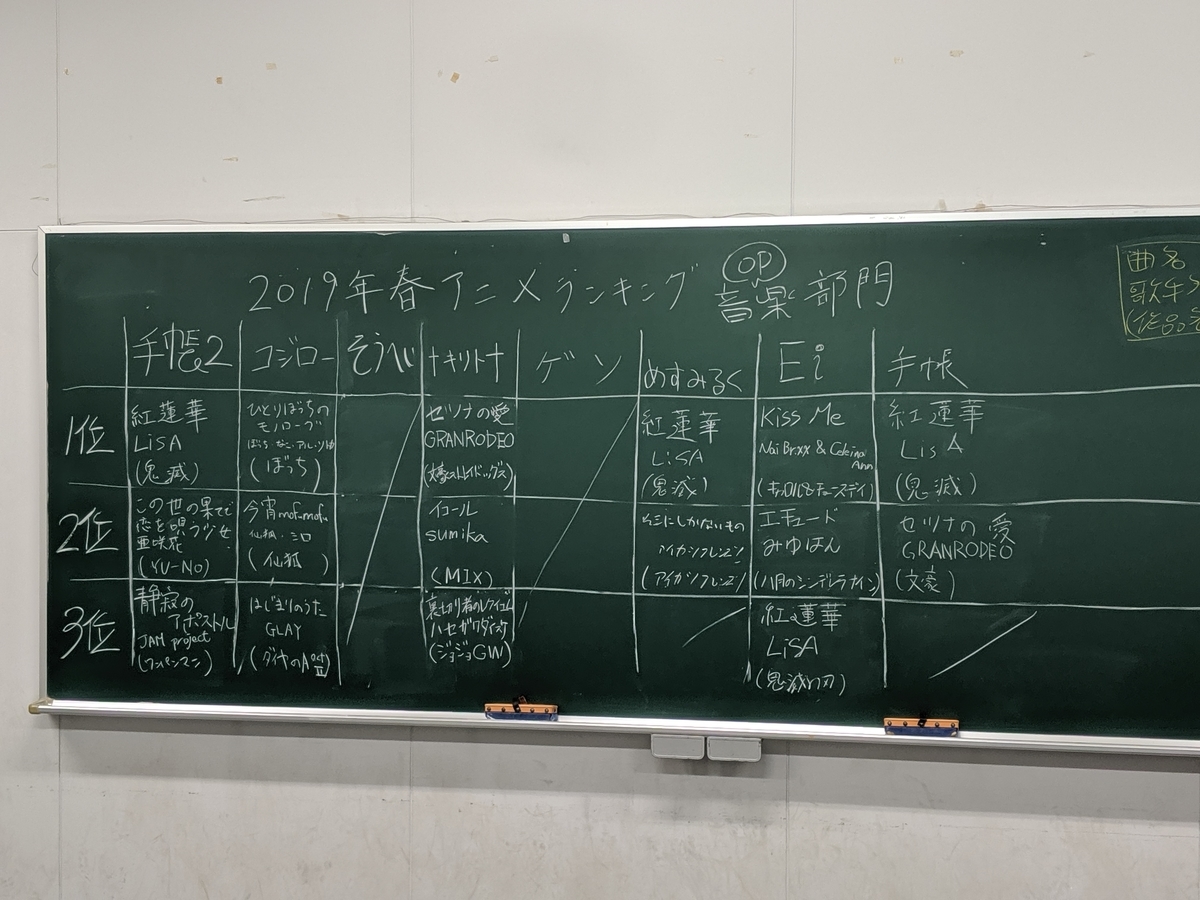 2019年春アニメランキング 音楽部門
OP
曲名
歌手
(作品
手帳2 コジロー そうへい †キリト† ゲソ めすみるく Ei 手帳
1位
紅蓮華
LiSA
(鬼滅)
ひとりぼっちの
モノローグ
(ぼっち)
セツナの愛
GRANRODEO
(文豪ストレイドッグス)
紅蓮華
LiSA
(鬼滅)
Kiss Me
Nai Br.xx & Celeina
Ann
(キャロル&チューズデイ)
紅蓮華
LiSA
(鬼滅)
2位
この世の果てで
恋を唄う少女
亜咲花
(YU-NO)
今宵mofumofu
仙狐・シロ
(仙狐)
イコール
sumika
(MIX)
ここにしかないもの
アイカツフレンズ!
(アイカツフレンズ!)
エチュード
みゆはん
(八月のシンデレラナイン)
セツナの愛
GRANRODEO
(文豪)
3位
静寂の
アポストル
JAM project
(ワンパンマン)
はじまりのうた
GLAY
(ダイヤのA act
II)
裏切り者のレクイエム
ハセガワダイスケ
(ジョジョGW)
紅蓮華
LiSA
(鬼滅の刃)